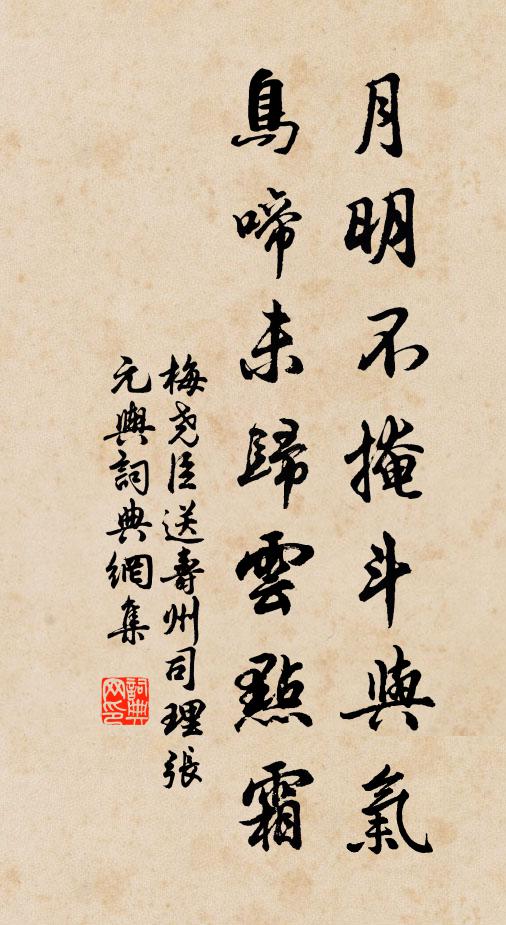 月明不掩斗與氣
鳥啼未歸雲點霜
梅尧臣送壽州司理張
元輿詞典網集
詞典网印